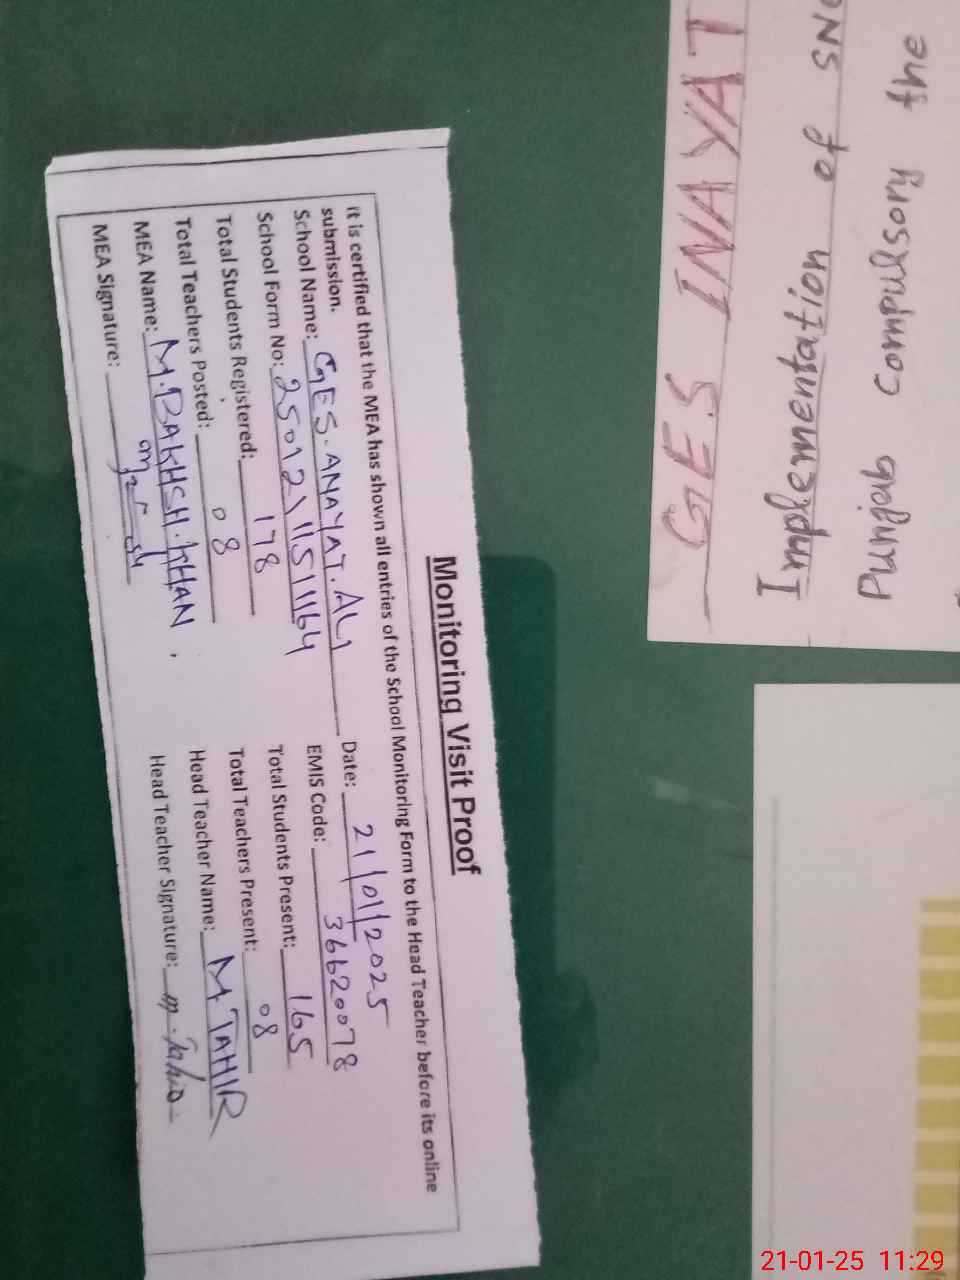 Monitoring Visit Proof
It is certified that the MEA has shown all entries of the School Monitoring Form to the Head Teacher before its online
submission.
School Name: GES. ANAYAT. ALI Date: 21/01/2025
School Form No: 25012115111164 EMIS Code: 36620078
Total Students Registered: 178 Total Students Present: 165
Total Teachers Posted: 08 Total Teachers Present: 08
MEA Name: M. BAKHSH. KHAN Head Teacher Name: M. TAHIR
MEA Signature: Head Teacher Signature: M. Tahir
GES INAYAT
Implementation of SNC
Punjab compulsory the
21-01-25 11:29